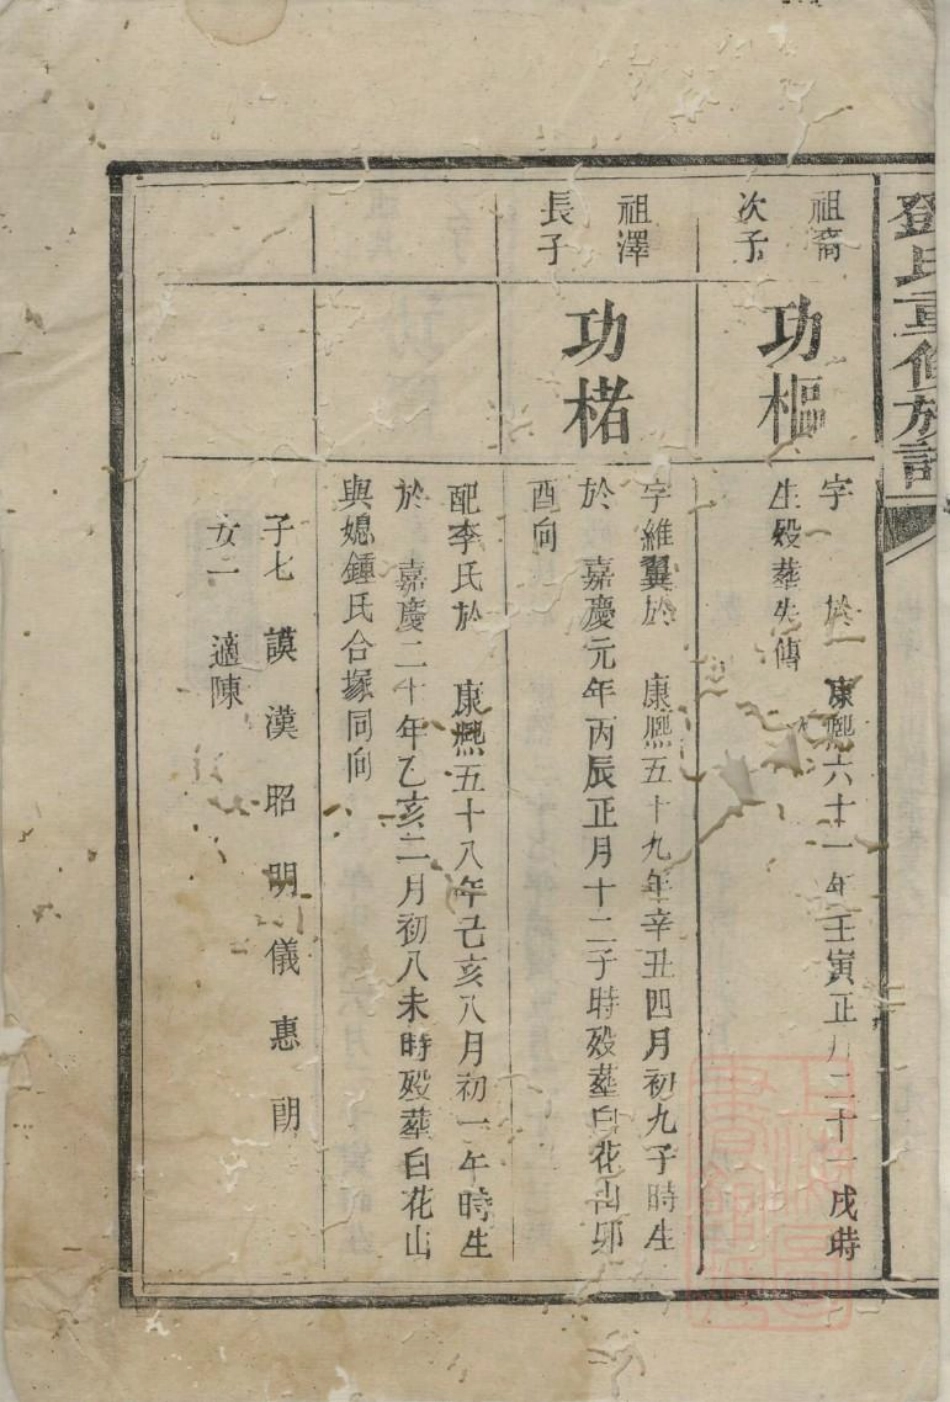 鄧氏重修族譜
祖裔
次子
功樞
字 於 康熙六十一年壬寅正月二十一戌時
生歿塟失傳
祖澤
長子
功楮
字維翼於 康熙五十九年辛丑四月初九子時生
於 嘉慶元年丙辰正月十二子時歿塟白花山卯
酉向
配李氏於 康熙五十八年己亥八月初一午時生
於 嘉慶二十年乙亥二月初八未時歿塟白花山
與媳鍾氏合塚同向
子七 謨 漢 昭 明 儀 惠 朗
女二 適陳